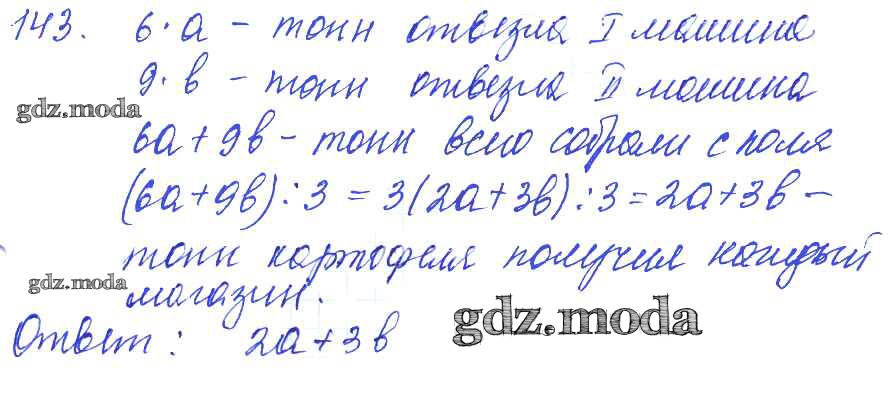 143. 6·а – тонн отвезла I машина
9·в – тонн отвезла II машина
gdz.moda
6а+9в – тонн всего собрали с поля
(6а+9в):3 = 3(2а+3в):3 = 2а+3в –
тонн картофеля получил каждый
gdz.moda
магазин.
Ответ: 2а+3в
gdz.moda